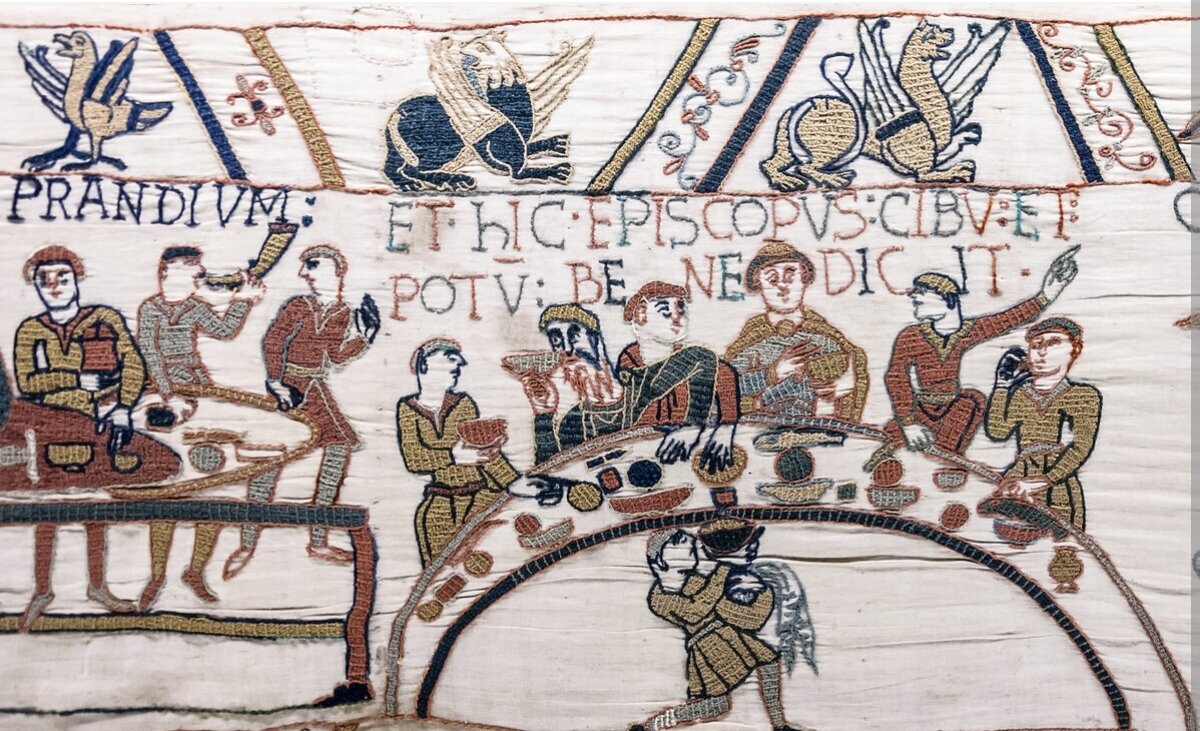 PRANDIVM:
ET·hIC·EPISCOPVS:CIBV:ET:
POTV: BE NE DIC IT·